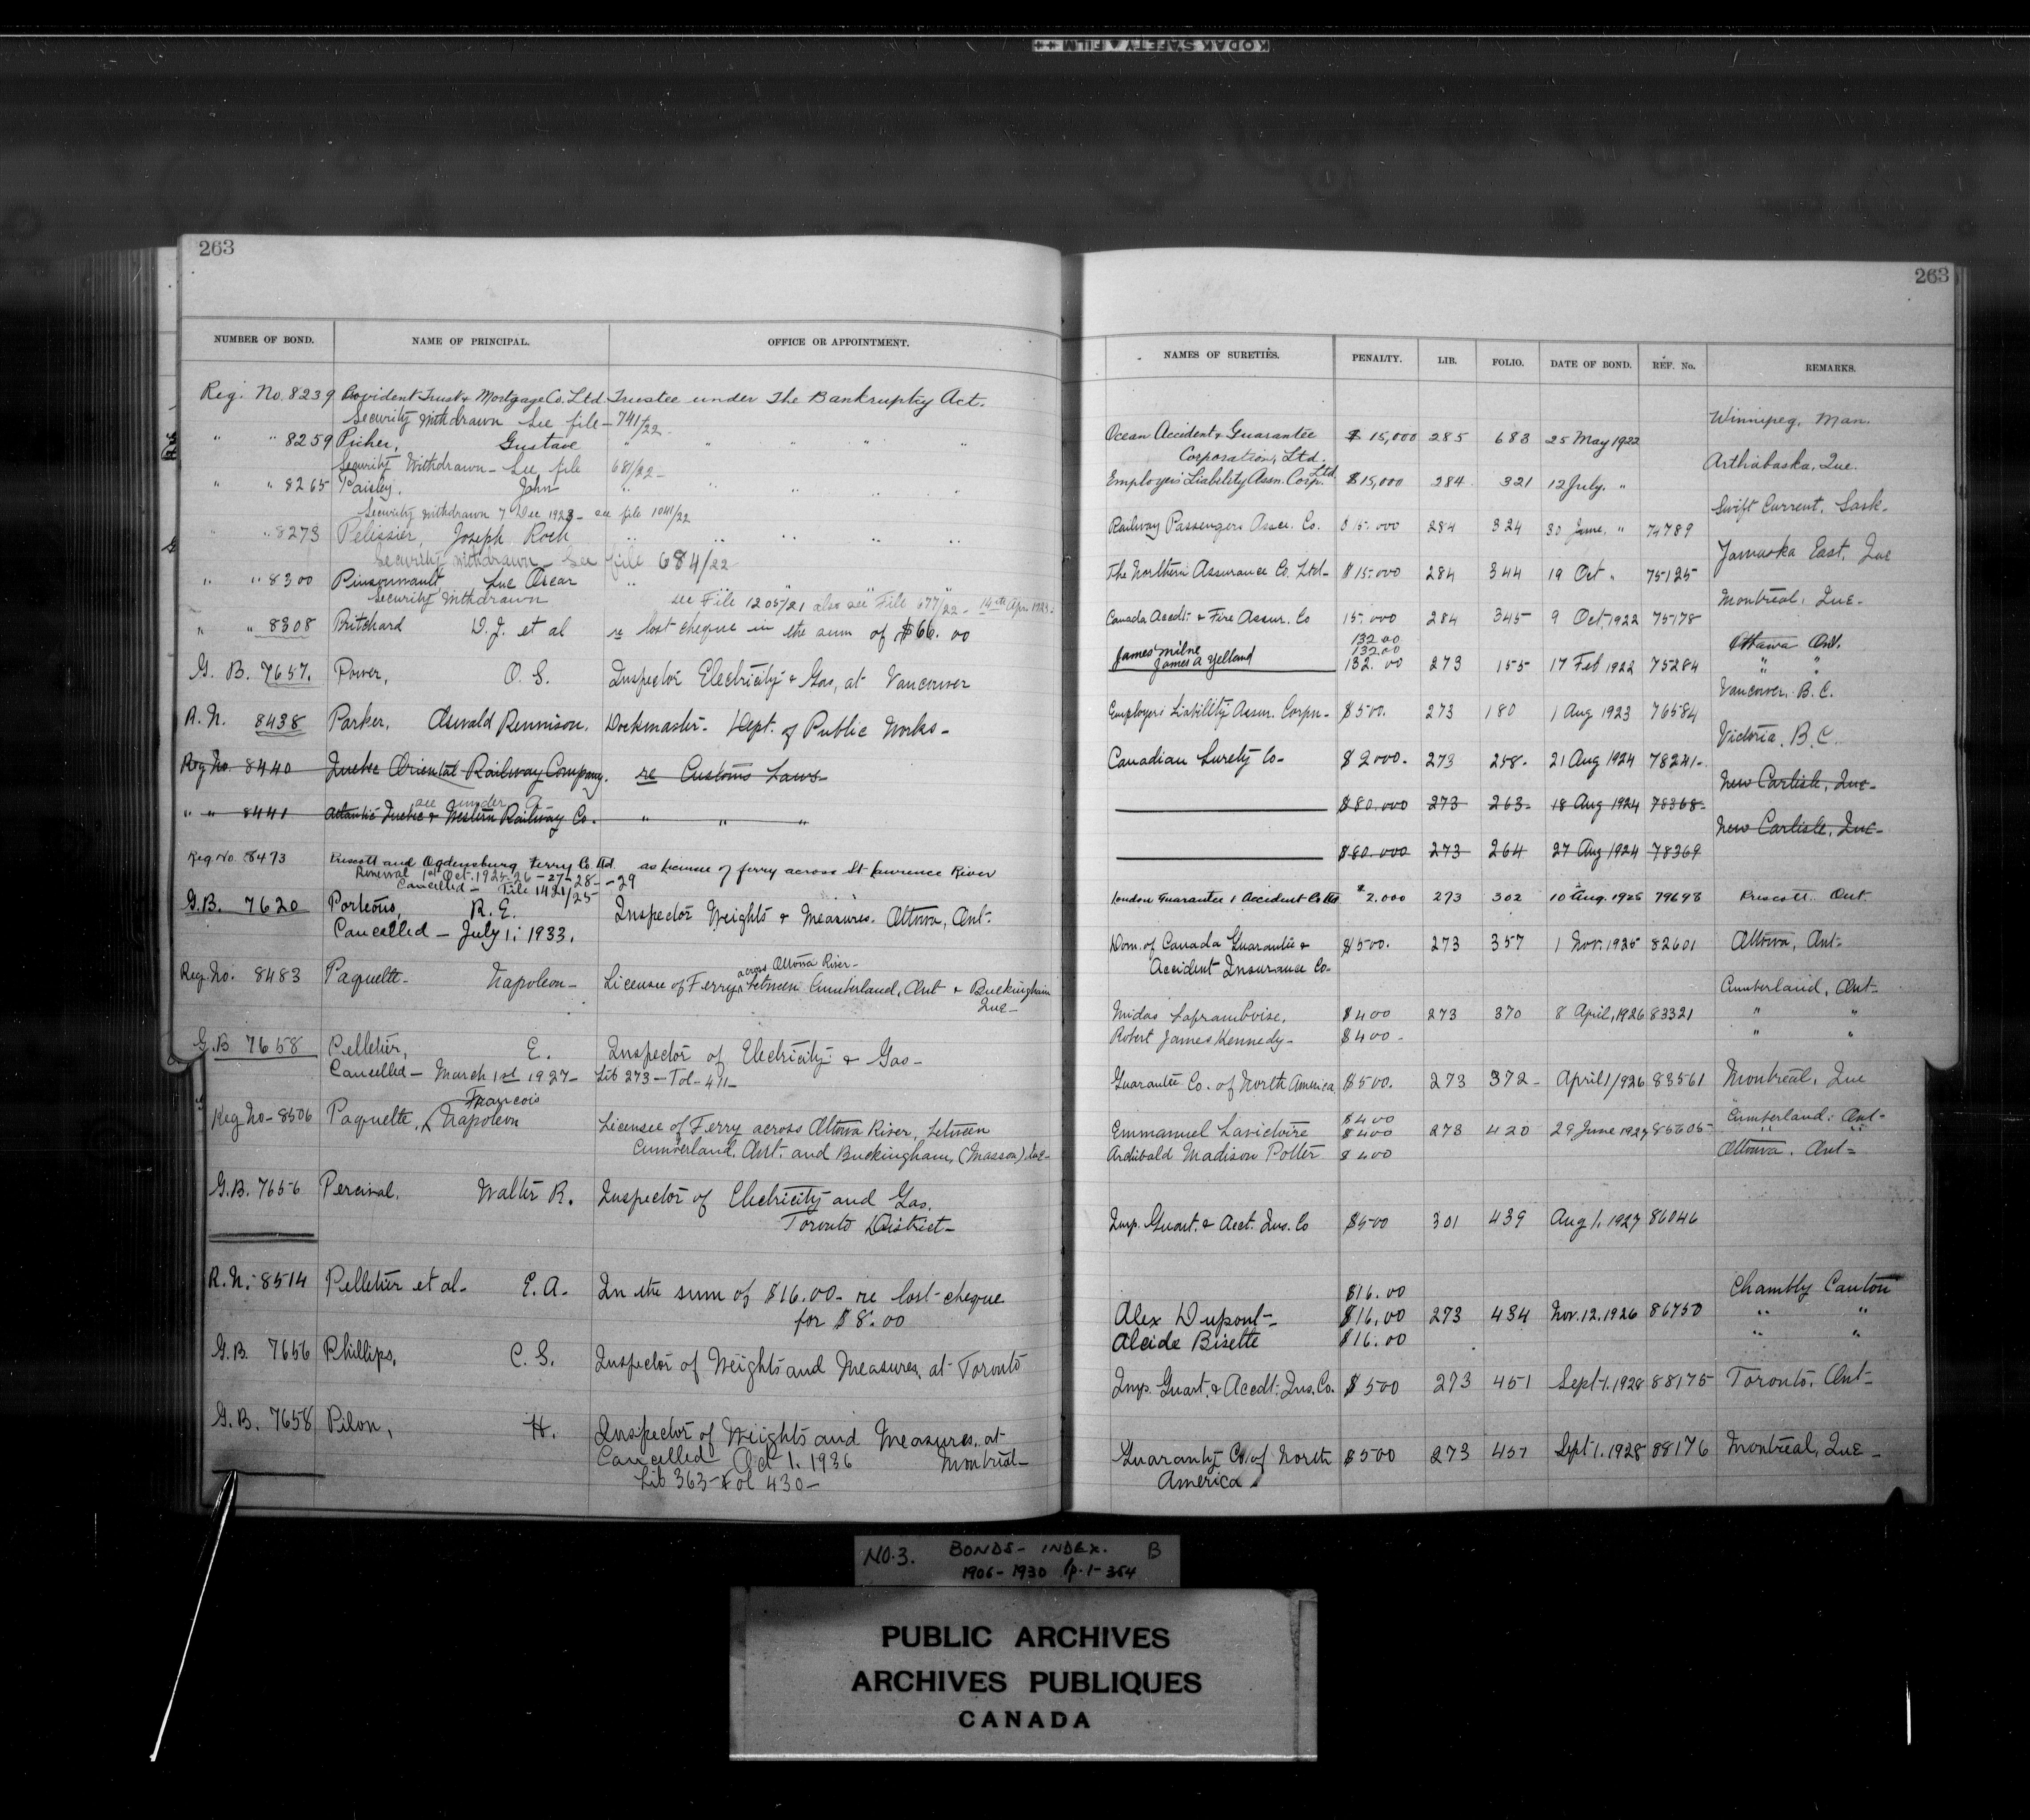 KODAK SAFETY ▲ FILM ++
263
NUMBER OF BOND. NAME OF PRINCIPAL. OFFICE OR APPOINTMENT.
Reg. No. 8239 Provident Trust & Mortgage Co. Ltd. Trustee under The Bankruptcy Act.
Security Withdrawn See file - 741/22 -
" " 8259 Picher, Gustave " " " " "
Security Withdrawn - See file 681/22 -
" " 8265 Paisley, John " " " " "
Security Withdrawn 7 Dec 1923 - see file 1041/22
" " 8273 Pelissier, Joseph Roch " " " " "
Security Withdrawn - See file 684/22
" " 8300 Pinsonnault Luc Oscar " " " "
Security Withdrawn see File 1205/21 also see File 677/22 - 14th Apr. 1923 -
" " 8308 Pritchard D. J. et al re lost cheque in the sum of $66.00
G. B. 7657. Power, O. S. Inspector Electricity & Gas, at Vancouver
R. N. 8438 Parker, Oswald Rennison. Dockmaster - Dept. of Public Works -
Reg No. 8440 Quebec Oriental Railway Company. re Customs Laws -
see under
" " 8441 Atlantic Quebec & Western Railway Co. " " "
Reg. No. 8473 Prescott and Ogdensburg Ferry Co. Ltd. as Licensee of ferry across St Lawrence River
Renewal 1st Oct. 1925-26-27-28--29
Cancelled - File 1421/25
G.B. 7620 Porteous, R. E. Inspector Weights & Measures. Ottawa, Ont.
Cancelled - July 1, 1933.
across Ottawa River -
Reg. No. 8483 Paquette - Napoleon - Licensee of Ferry between Cumberland, Ont & Buckingham
Que -
G.B 7658 Pelletier, E. Inspector of Electricity & Gas -
Cancelled - March 1st 1927 - Lib 273 - Fol - 471 -
Francois
Reg No - 8506 Paquette, Napoleon Licensee of Ferry across Ottawa River, between
Cumberland, Ont. and Buckingham, (Masson) Que -
G.B. 7656 Percival, Walter R. Inspector of Electricity and Gas.
Toronto District -
R.N. 8514 Pelletier et al - E. A. In the sum of $16.00 - re lost cheque
for $8.00
G.B. 7656 Phillips, C. S. Inspector of Weights and Measures, at Toronto
G.B. 7658 Pilon, H. Inspector of Weights and Measures, at
Cancelled Oct 1. 1936 Montreal -
Lib 363 - Fol 430 -
263
NAMES OF SURETIES. PENALTY. LIB. FOLIO. DATE OF BOND. REF. No. REMARKS.
Winnipeg, Man.
Ocean Accident & Guarantee $ 15,000 285 683 25 May 1922
Corporation, Ltd.
Arthabaska, Que.
Employers Liability Assn. Corp. Ltd $15,000 284 321 12 July. "
Swift Current, Sask.
Railway Passengers Assce. Co. $15.000 284 324 30 June, " 74789
Yamaska East, Que
The Northern Assurance Co. Ltd - $15.000 284 344 19 Oct " 75125
Montreal, Que -
Canada Accdt. & Fire Assur. Co 15.000 284 345 9 Oct 1922 75178
132.00
Ottawa Ont.
James Milne 132.00
James A Yelland 132.00 273 155 17 Feb 1922 75284 " "
Vancouver. B. C.
Employers Liability Assur. Corpn - $500. 273 180 1 Aug 1923 76584
Victoria, B.C.
Canadian Surety Co - $2000. 273 258 - 21 Aug 1924 78241 -
New Carlisle, Que -
$80.000 273 263 - 18 Aug 1924 78368 -
New Carlisle, Que -
$80.000 273 264 27 Aug 1924 78369
London Guarantee & Accident Co Ltd $2.000 273 302 10 Aug. 1925 79698 Prescott. Ont.
Dom. of Canada Guarantee & $500. 273 357 1 Nov. 1925 82601 Ottawa, Ont -
Accident Insurance Co -
Cumberland, Ont -
Midas Laframboise, $400 273 370 8 April, 1926 83321 " "
Robert James Kennedy - $400 - " "
Guarantee Co. of North America $500. 273 372 - April 1/926 83561 Montreal, Que
$400 Cumberland, Ont -
Emmanuel Lavictoire $400 273 420 29 June 1927 85605 - " "
Archibald Madison Potter $400 Ottawa, Ont -
Imp. Guart. & Acct. Ins. Co $500 301 439 Aug 1. 1927 86046
$16.00 Chambly Canton
Alex Dupont - $16.00 273 434 Nov. 12. 1926 86750 " "
Alcide Bisette $16.00 " "
Imp. Guart. & Accdt. Ins. Co. $500 273 451 Sept 1. 1928 88175 Toronto, Ont -
Guaranty Co of North $500 273 457 Sept 1. 1928 88176 Montreal, Que -
America
NO.3. BONDS - INDEX. B
1906 - 1930 p. 1 - 354
PUBLIC ARCHIVES
ARCHIVES PUBLIQUES
CANADA